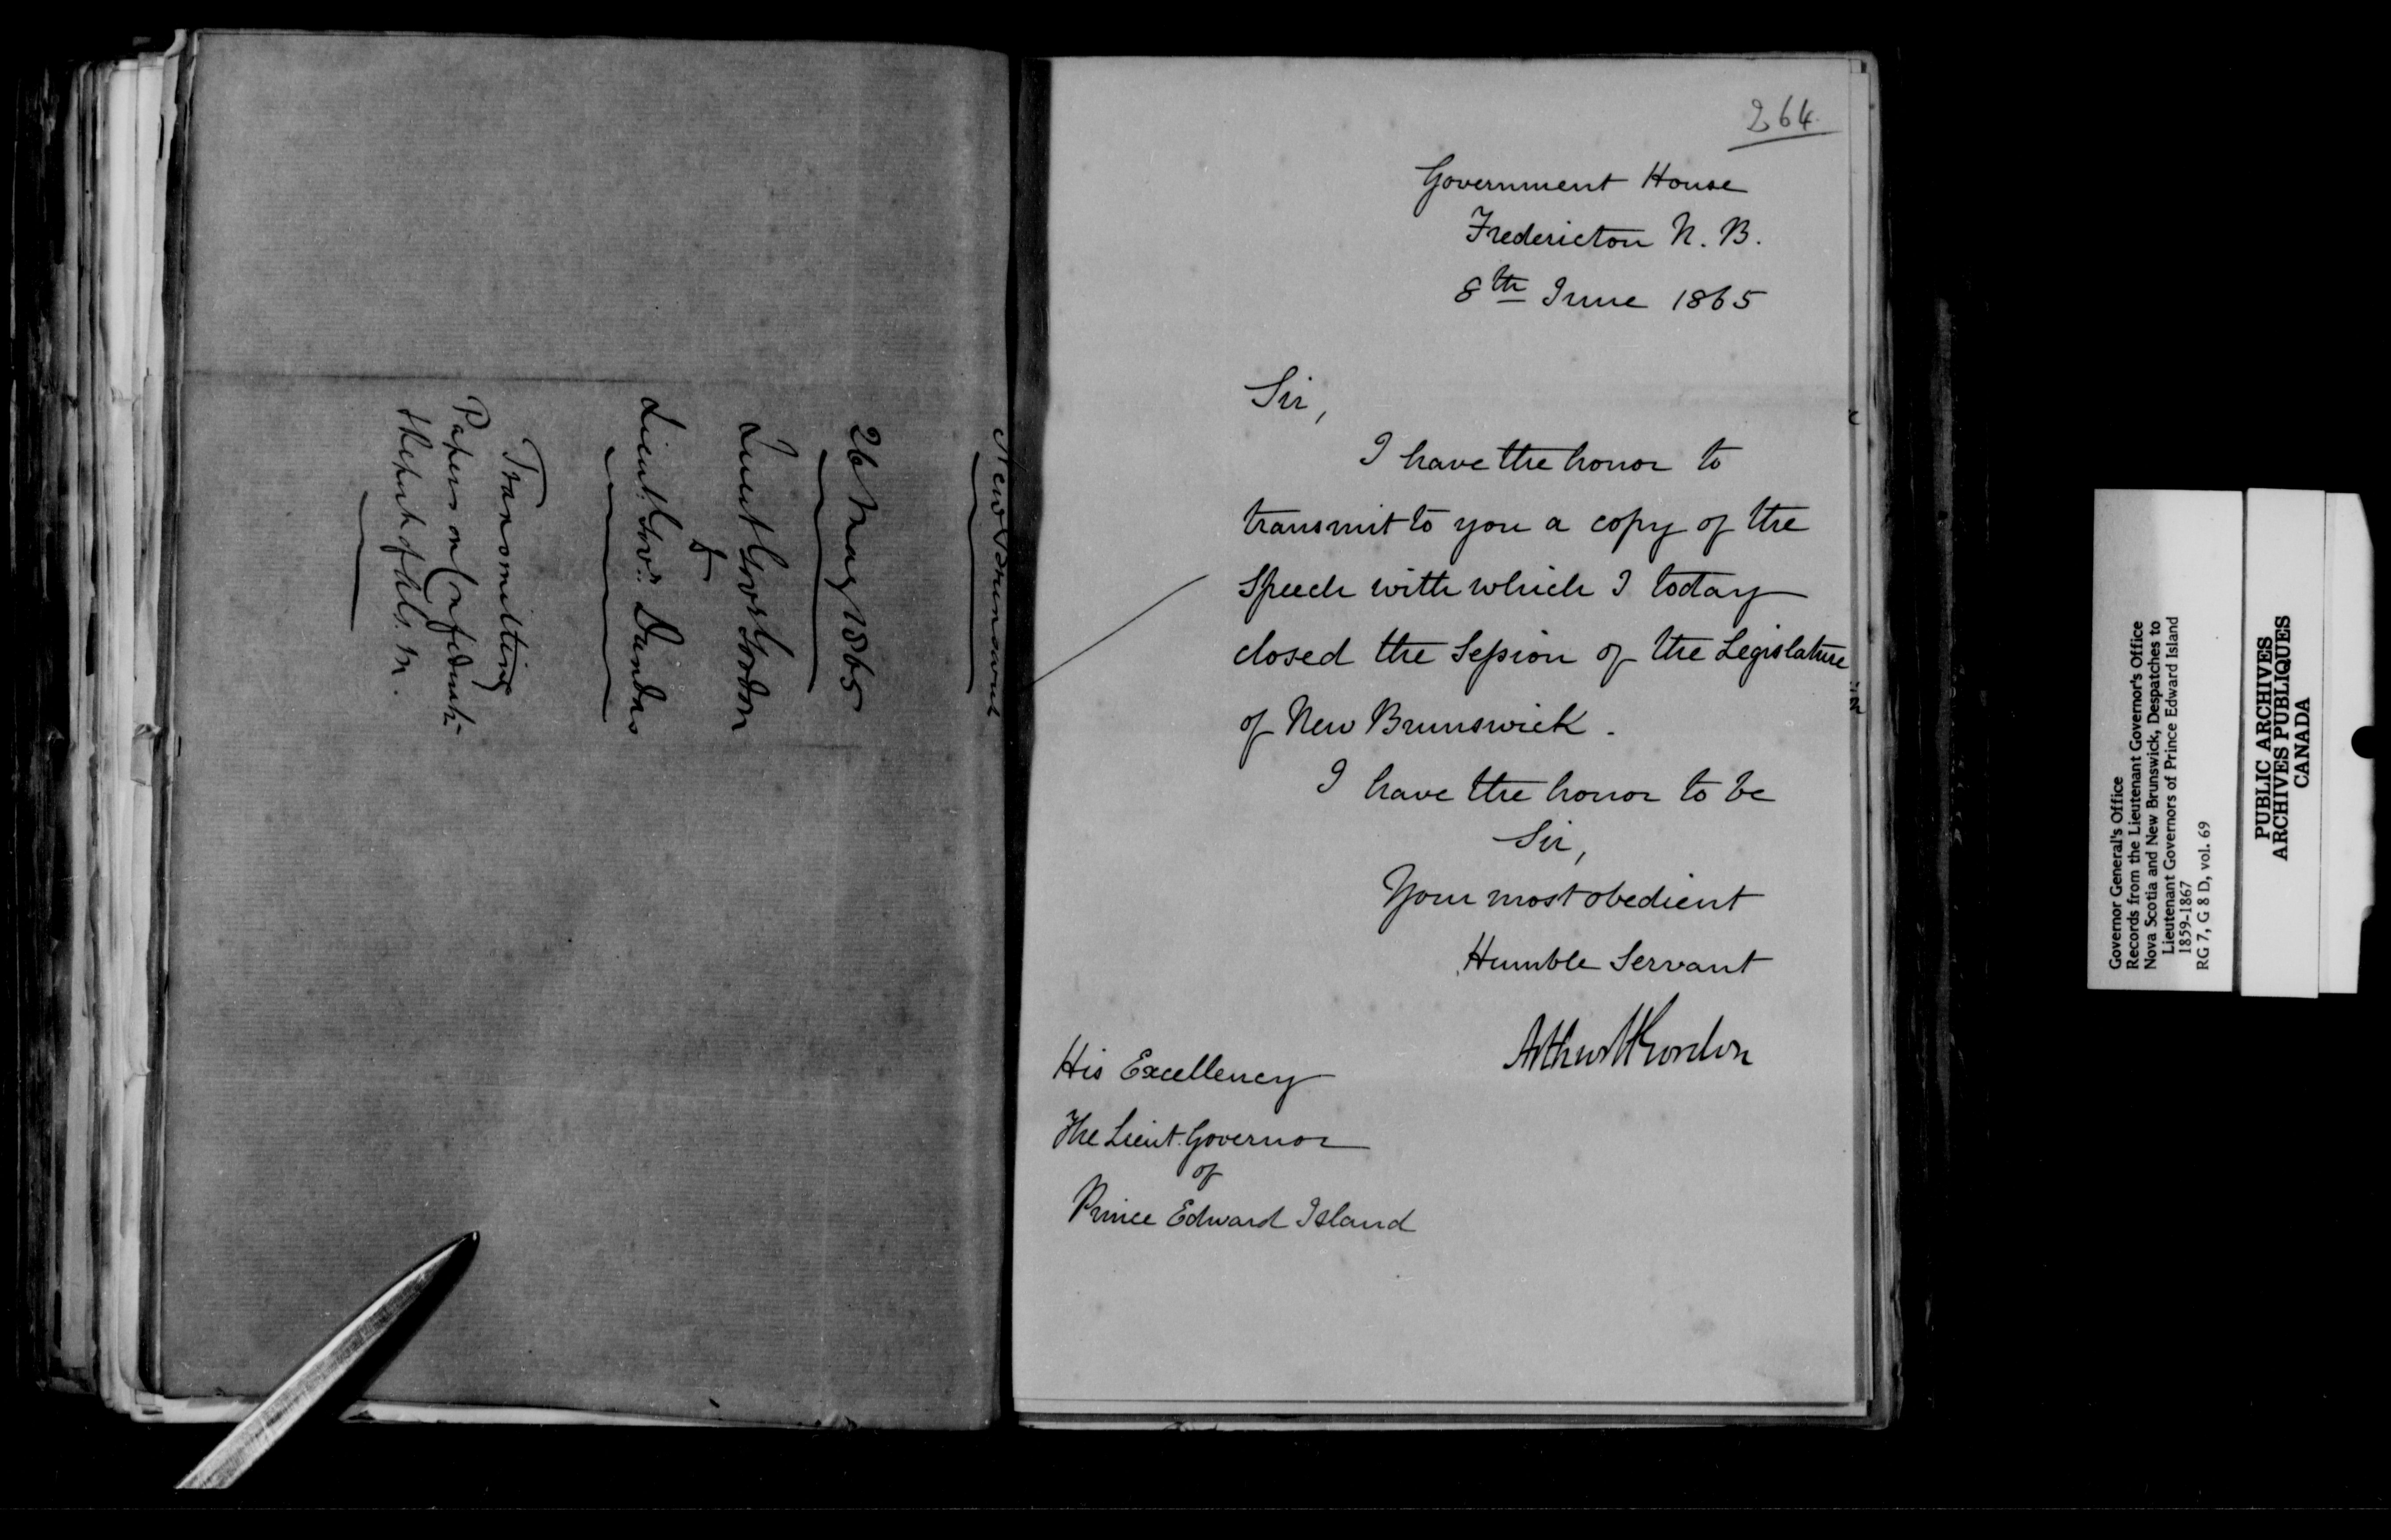 New Brunswick
26 May 1865
Lieut Govr Gordon
to
Lieut. Govr. Dundas
Transmitting
Papers on Confederatn
264
Government House
Fredericton N. B.
8th June 1865
Sir,
I have the honor to
transmit to you a copy of the
Speech with which I today
closed the Session of the Legislature
of New Brunswick.
I have the honor to be
Sir,
Your most obedient
Humble Servant
Arthur H Gordon
His Excellency
The Lieut. Governor
of
Prince Edward Island
Governor General's Office
Records from the Lieutenant Governor's Office
Nova Scotia and New Brunswick, Despatches to
Lieutenant Governors of Prince Edward Island
1859-1867
RG 7, G 8 D, vol. 69
PUBLIC ARCHIVES
ARCHIVES PUBLIQUES
CANADA